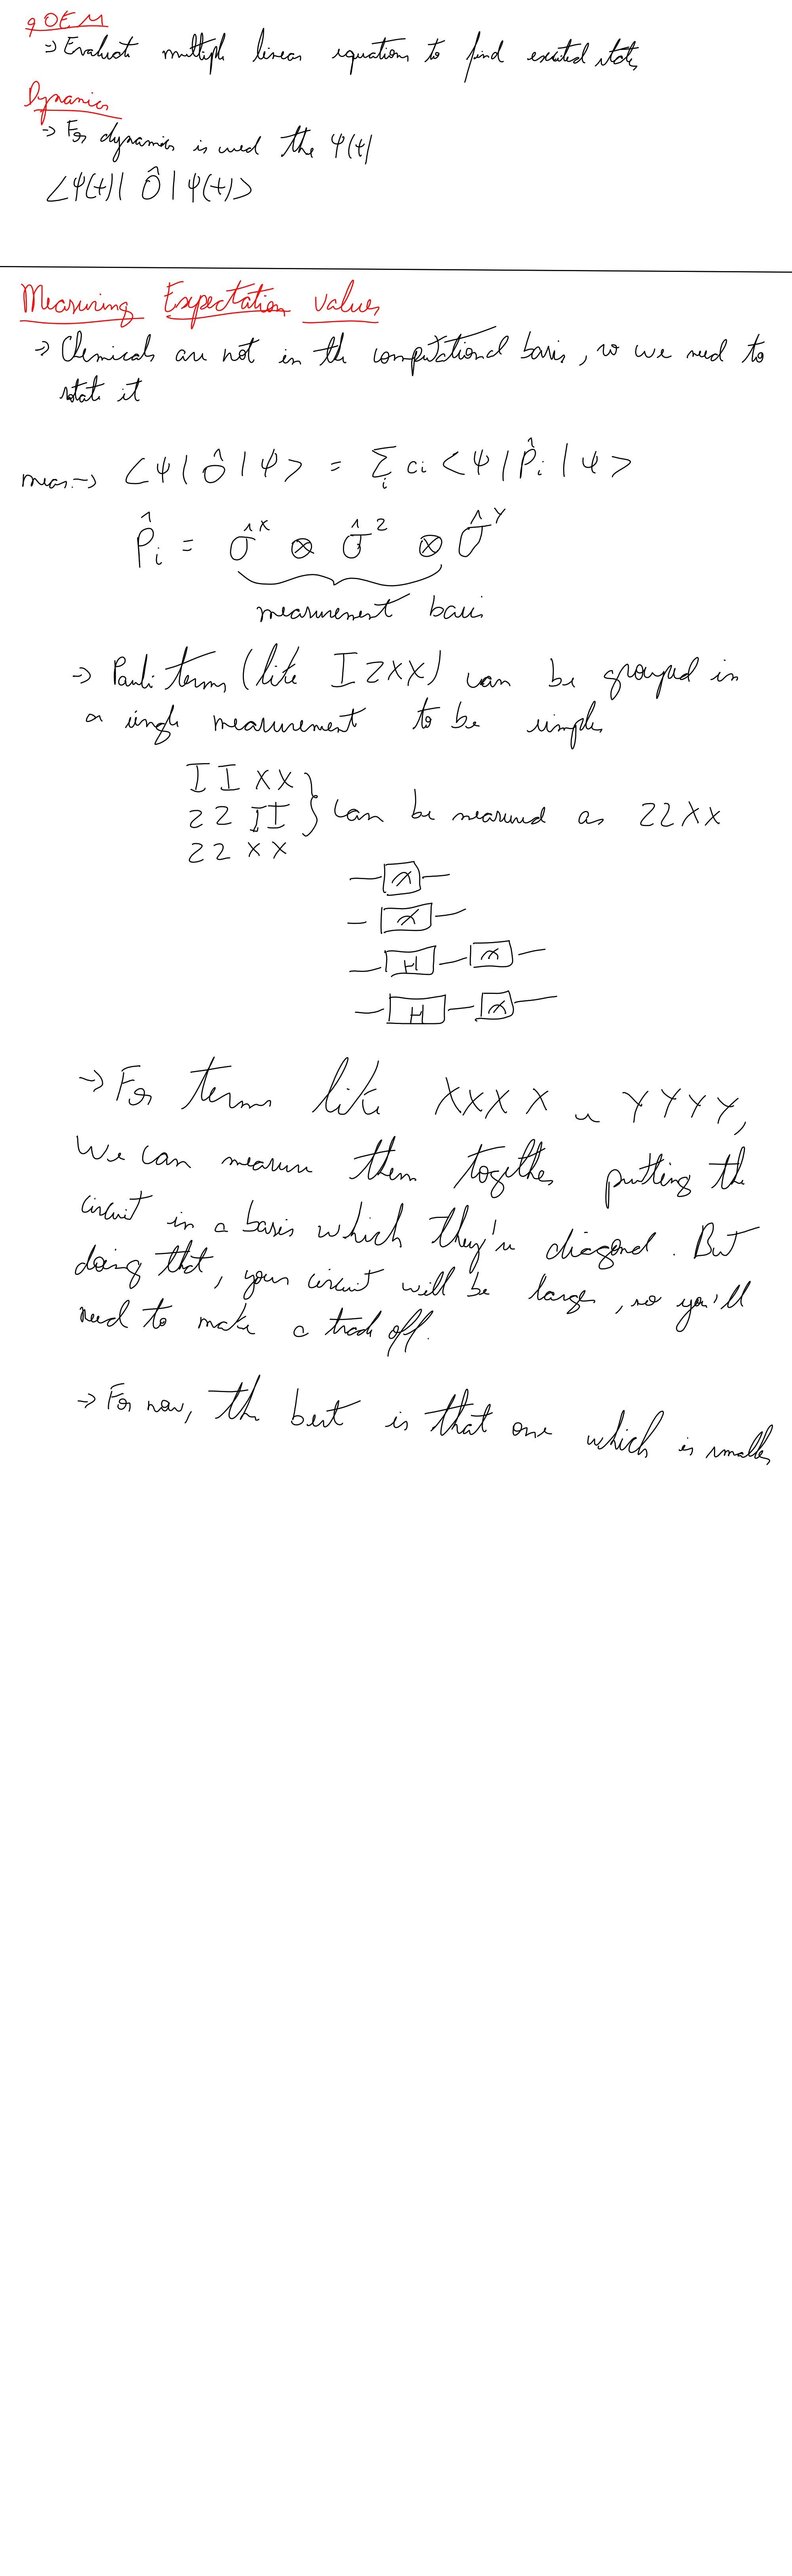 qOEM
→ Evaluate multiple linear equations to find excited states
Dynamics
→ For dynamics is used the Ψ(t)
<Ψ(t)| Ô |Ψ(t)>
Measuring Expectation values
→ Chemicals are not in the computational basis, so we need to
rotate it
meas.→ <Ψ| Ô |Ψ> = Σi ci <Ψ| P̂i |Ψ>
P̂i = σ̂^X ⊗ σ̂^Z ⊗ σ̂^Y
measurement basis
→ Pauli terms (like IZXX) can be grouped in
a single measurement to be simpler
IIXX
ZZII } can be measured as ZZXX
ZZXX
H
H
→ For terms like XXXX YYYY,
we can measure them together putting the
circuit in a basis which they're diagonal. But
doing that, your circuit will be larger, so you'll
need to make a trade off.
→ For now, the best is that one which is smaller